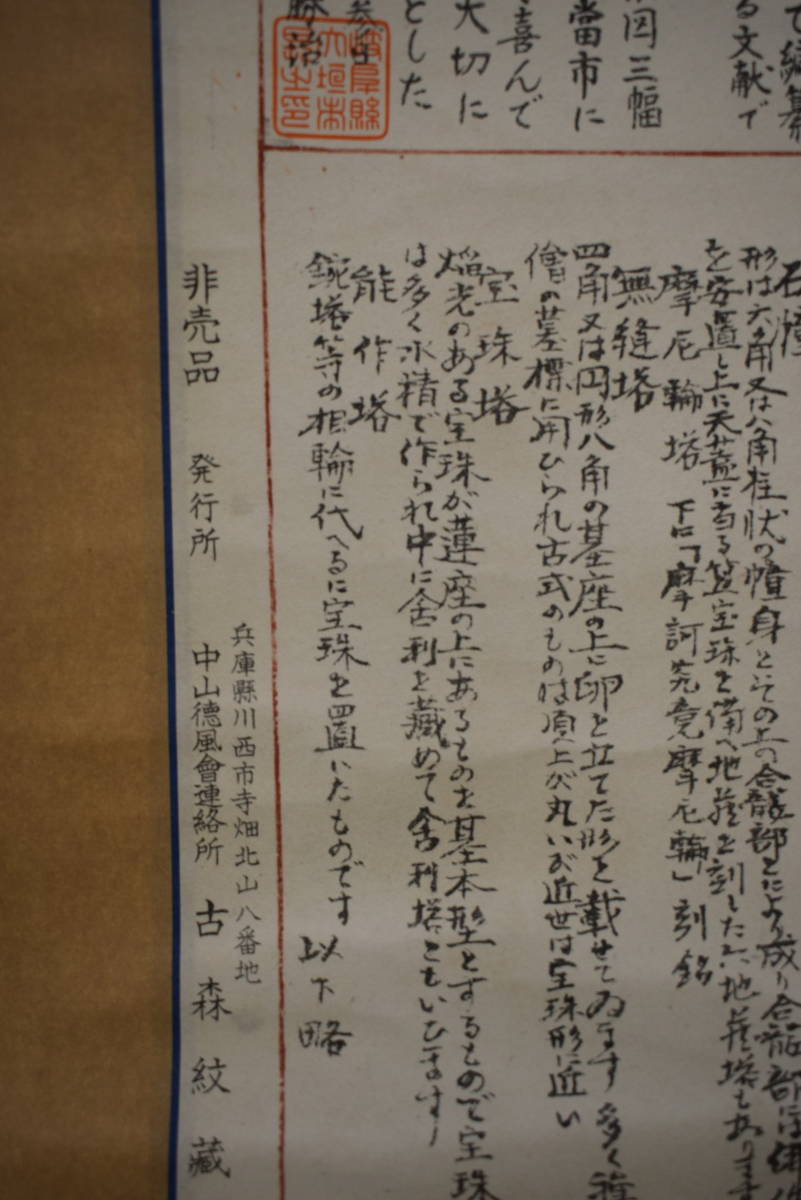 で編纂
る文献で
三幅
當市に
喜んで
大切に
とした
勝治
岐阜縣
大垣市
石幢
形は六角又は八角柱状の幢身とその上の合龕部とにより成り合龕部には
を安置し上に天蓋に当る笠宝珠を備へ地蔵を刻した六地蔵塔もあります
摩尼輪塔 下に「摩訶究竟摩尼輪」刻銘
無縫塔
四角又は円形八角の基座の上に卵を立てた形を載せてゐます 多く
僧の墓標に用ひられ古式のものは頂上が丸いが近世は宝珠形に近い
宝珠塔
焔光のある宝珠が蓮座の上にあるものを基本型とするもので宝珠
は多く水精で作られ中に舎利を藏めて舎利塔ともいひます
能作塔
銃塔等の相輪に代へるに宝珠を置いたものです 以下略
兵庫縣川西市寺畑北山八番地
非売品 発行所 中山徳風會連絡所 古森紋藏